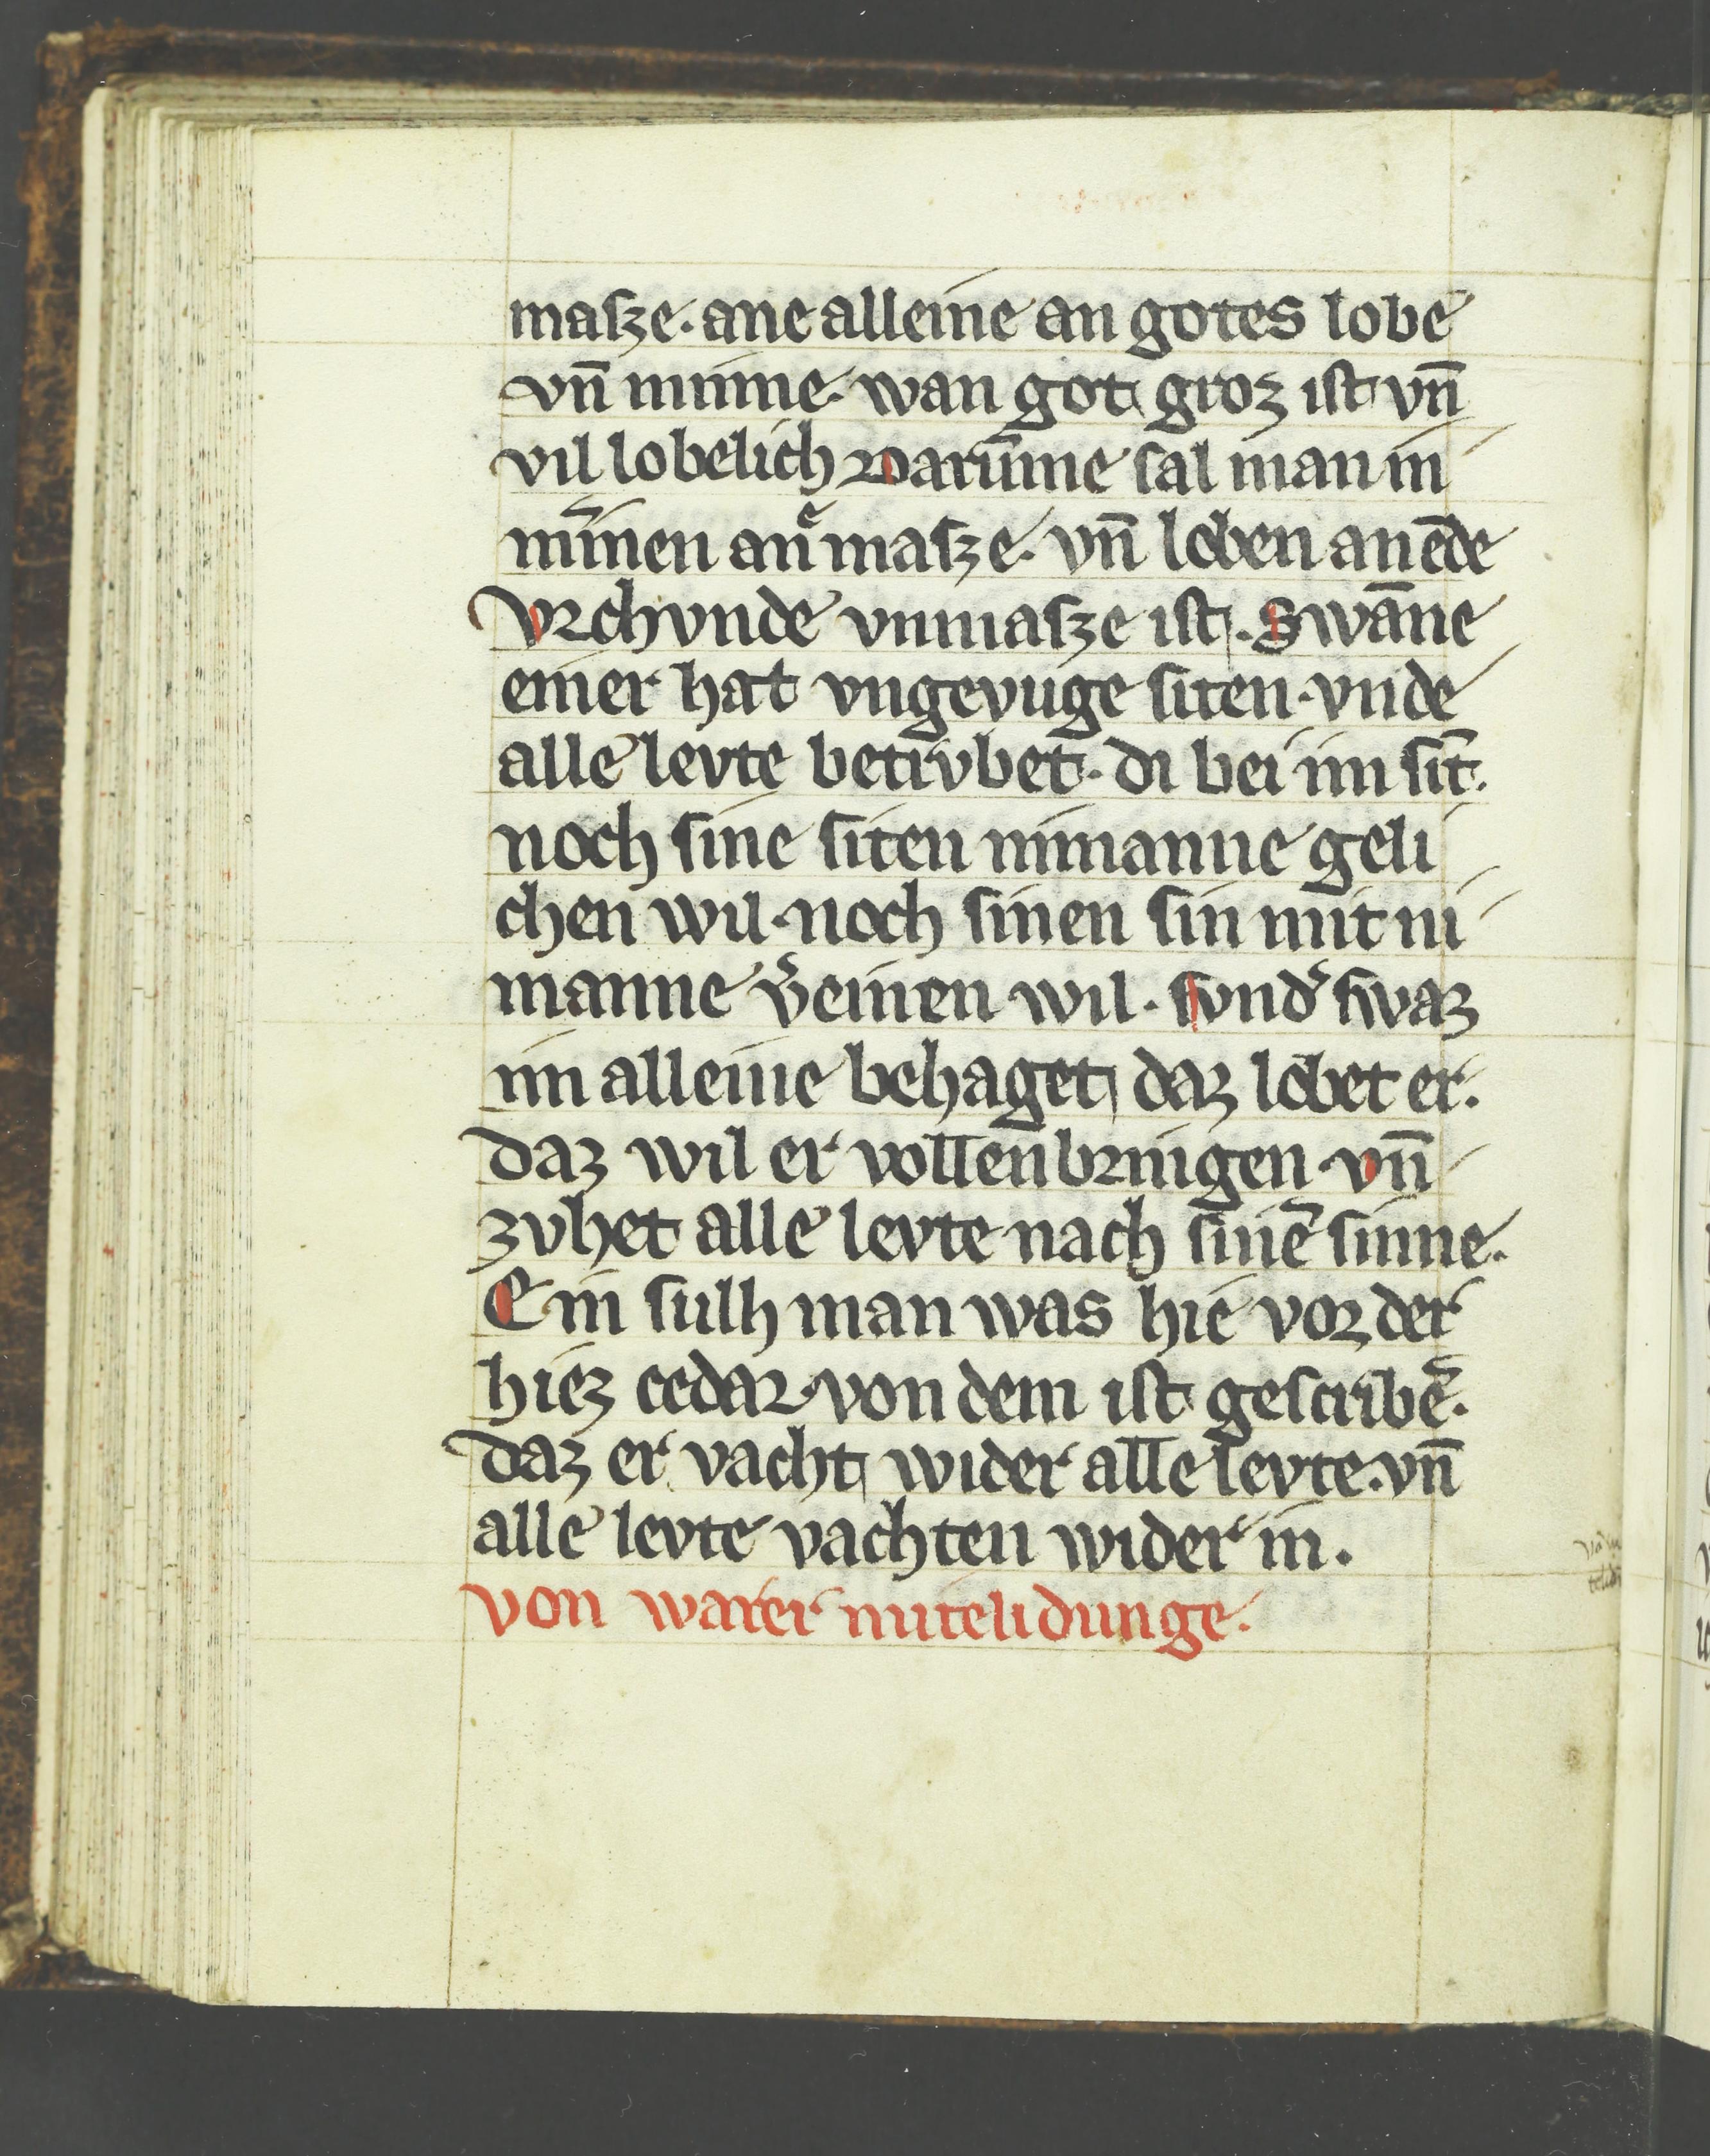 masze. ane alleine an gotes lobe
vn̄ minne. wan got groz ist vn̄
vil lobelich Darūme sal man in
mīnen anͤ masze. vn̄ loben an ēde
Vrchvnde vnmasze ist. Swāne
einer hat vngevuge siten. vnde
alle levte betrvbet. di bei im sīt.
noch sine siten nimanne geli
chen wil. noch sinen sin mit ni
manne v̓einen wil. svnd̓ swaz
im alleine behaget daz lobet er.
daz wil er vollenbringen. vn̄
zvhet alle levte nach sinē sinne.
Ein sulh man was hie vor der
hiez cedar. von dem ist gescribē.
daz er vacht wider alle levte. vn̄
alle levte vachten wider in.
von warer mitelidunge.